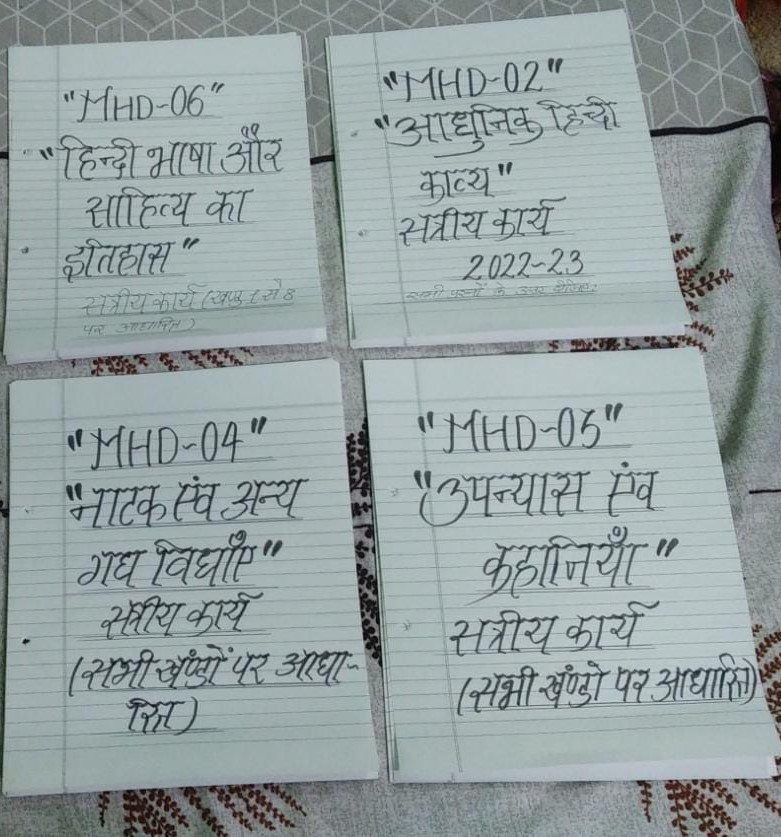 "MHD-06"
"हिन्दी भाषा और
साहित्य का
इतिहास"
सत्रीय कार्य (खण्ड 1 से 8
पर आधारित)
"MHD-02"
"आधुनिक हिन्दी
काव्य"
सत्रीय कार्य
2022-23
सभी प्रश्नों के उत्तर दीजिए:
"MHD-04"
"नाटक एंव अन्य
गद्य विधाएँ"
सत्रीय कार्य
(सभी खंण्डों पर आधा-
रित)
"MHD-03"
"उपन्यास एंव
कहानियाँ"
सत्रीय कार्य
(सभी खंण्डो पर आधारित)